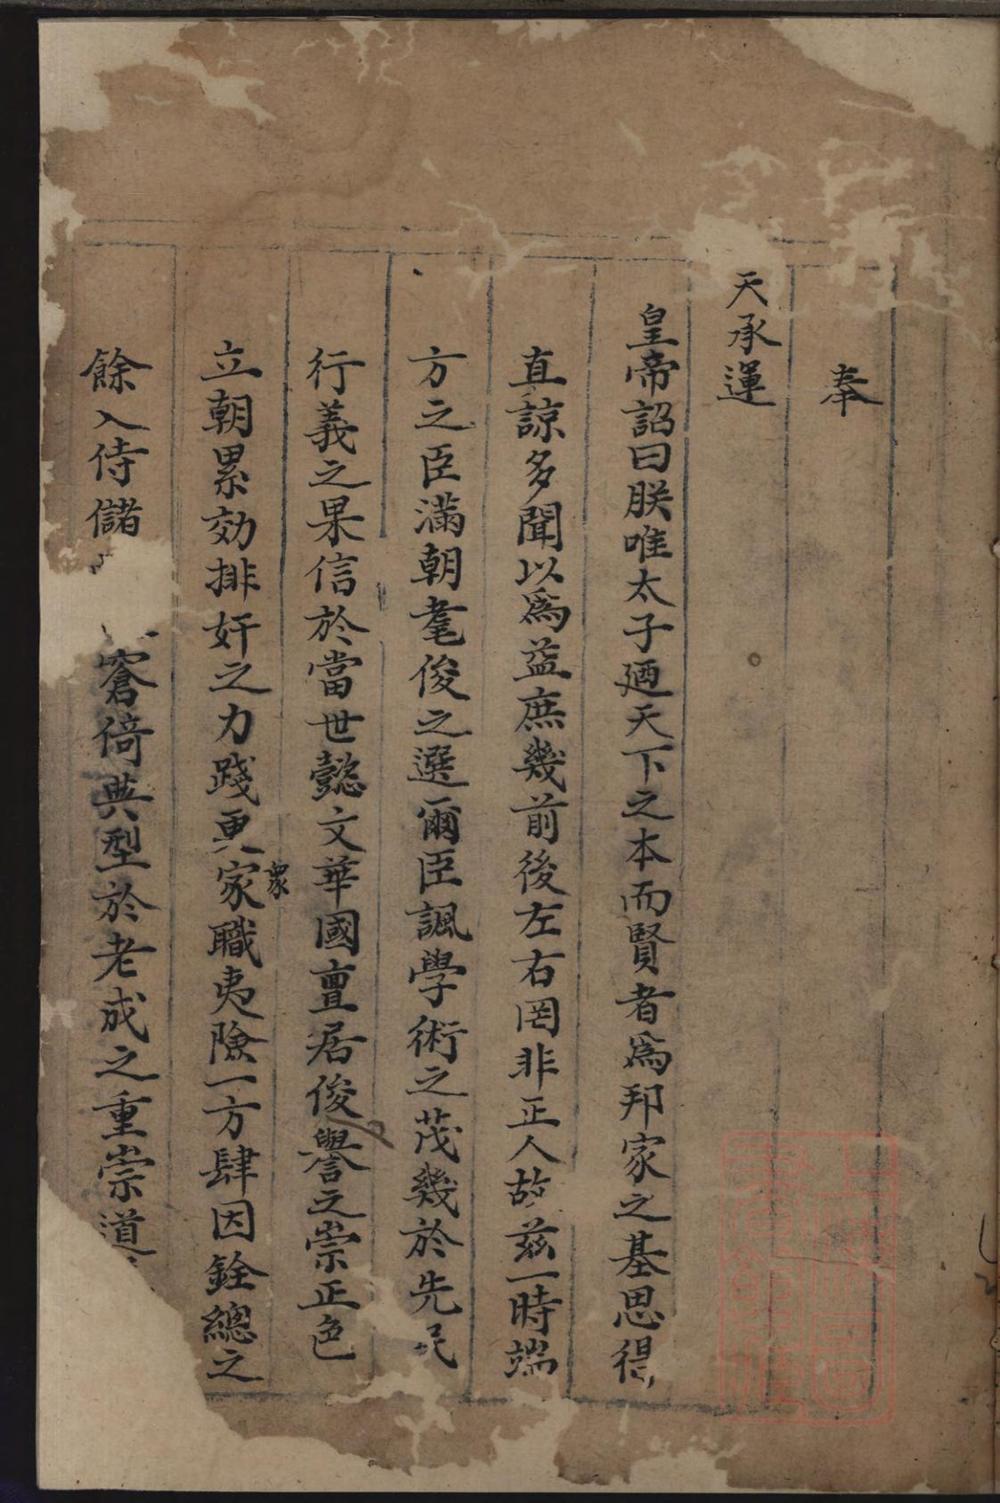 奉
天承運
皇帝詔曰朕唯太子廼天下之本而賢者為邦家之基思得
直諒多聞以為益庶幾前後左右罔非正人故茲一時端
方之臣滿朝耄俊之選爾臣諷學術之茂幾於先民
行義之果信於當世懿文華國亶居俊譽之崇正色
立朝累効排奸之力踐更家職夷險一方肆因銓總之
眾
餘入侍儲
窘倚典型於老成之重崇道